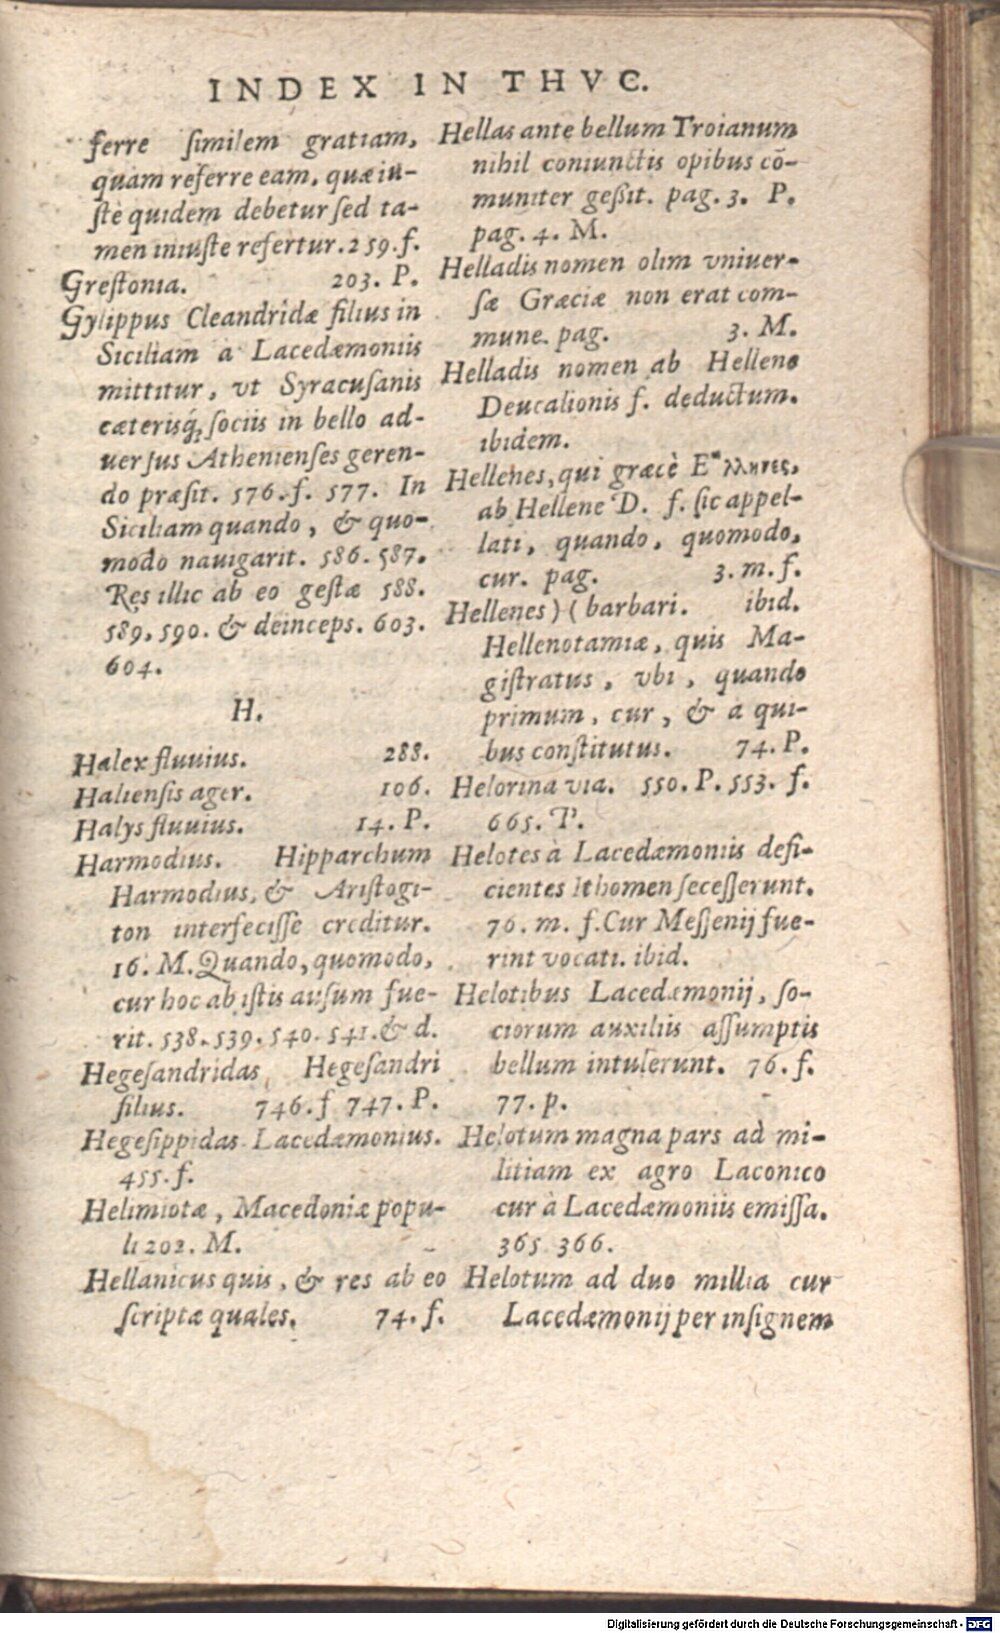 INDEX IN THVC.
ferre ſimilem gratiam,
quam referre eam, quæ iu-
ſtè quidem debetur ſed ta-
men iniuſte refertur. 259. f.
Greſtonia. 203. P.
Gylippus Cleandridæ filius in
Siciliam à Lacedæmoniis
mittitur, vt Syracuſanis
cæteriſq́; ſociis in bello ad-
uerſus Athenienſes geren-
do præſit. 576. f. 577. In
Siciliam quando, & quo-
modo nauigarit. 586. 587.
Res illic ab eo geſtæ 588.
589. 590. & deinceps. 603.
604.
H.
Halex fluuius. 288.
Halienſis ager. 106.
Halys fluuius. 14. P.
Harmodius. Hipparchum
Harmodius, & Ariſtogi-
ton interfeciſſe creditur.
16. M. Quando, quomodo,
cur hoc ab iſtis auſum fue-
rit. 538. 539. 540. 541. & d.
Hegeſandridas Hegeſandri
filius. 746. f 747. P.
Hegeſippidas Lacedæmonius.
455. f.
Helimiotæ, Macedoniæ popu-
li 202. M.
Hellanicus quis, & res ab eo
ſcriptæ quales. 74. f.
Hellas ante bellum Troianum
nihil coniunctis opibus cõ-
muniter geßit. pag. 3. P.
pag. 4. M.
Helladis nomen olim vniuer-
ſæ Græciæ non erat com-
mune. pag. 3. M.
Helladis nomen ab Hellene
Deucalionis f. deductum.
ibidem.
Hellenes, qui græcè Ἕλληνες,
ab Hellene D. f. ſic appel-
lati, quando, quomodo,
cur. pag. 3. m. f.
Hellenes ) ( barbari. ibid.
Hellenotamiæ, quis Ma-
giſtratus, vbi, quando
primum, cur, & à qui-
bus conſtitutus. 74. P.
Helorina via. 550. P. 553. f.
665. P.
Helotes à Lacedæmoniis defi-
cientes Ithomen ſeceſſerunt.
76. m. f. Cur Meſſenij fue-
rint vocati. ibid.
Helotibus Lacedæmonij, ſo-
ciorum auxiliis aſſumptis
bellum intulerunt. 76. f.
77. p.
Helotum magna pars ad mi-
litiam ex agro Laconico
cur à Lacedæmoniis emiſſa.
365 366.
Helotum ad duo millia cur
Lacedæmonij per inſignem
Digitalisierung gefördert durch die Deutsche Forschungsgemeinschaft - DFG